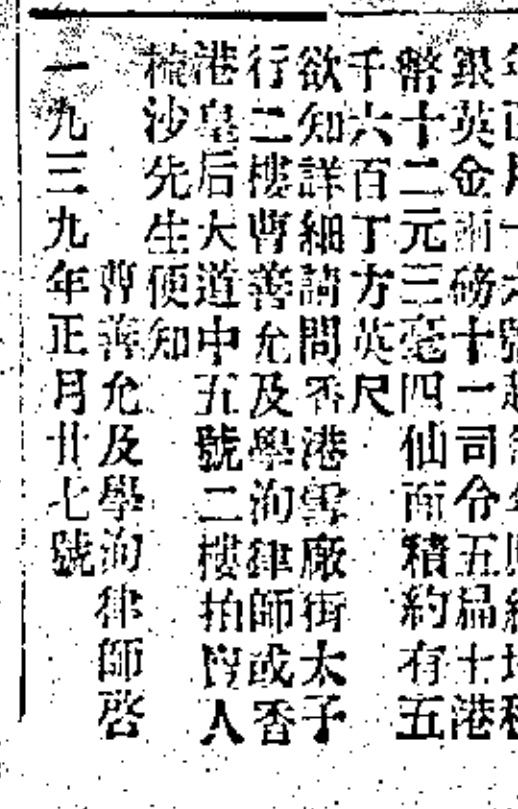 銀英金兩磅十一司令五扁士港
幣十二元三毫四仙面積約有五
千六百丁方英尺
欲知詳細請問香港雪廠街太子
行二樓曹善允及學洵律師或香
港皇后大道中五號二樓拍賣人
梳沙先生便知
曹善允及學洵律師啓
一九三九年正月廿七號